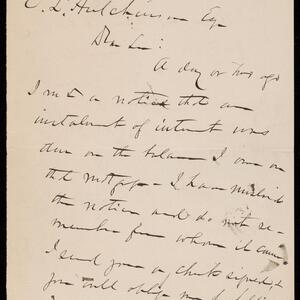 C. L. Hutchinson Esq
Dear Sir:
A day or two ago
I met a notice that an
instalment of interest was
due on the balance I owe on
that mortgage - I have mislaid
the notice and do not re-
member from whom it came
I send you a check signed &
you will oblige me